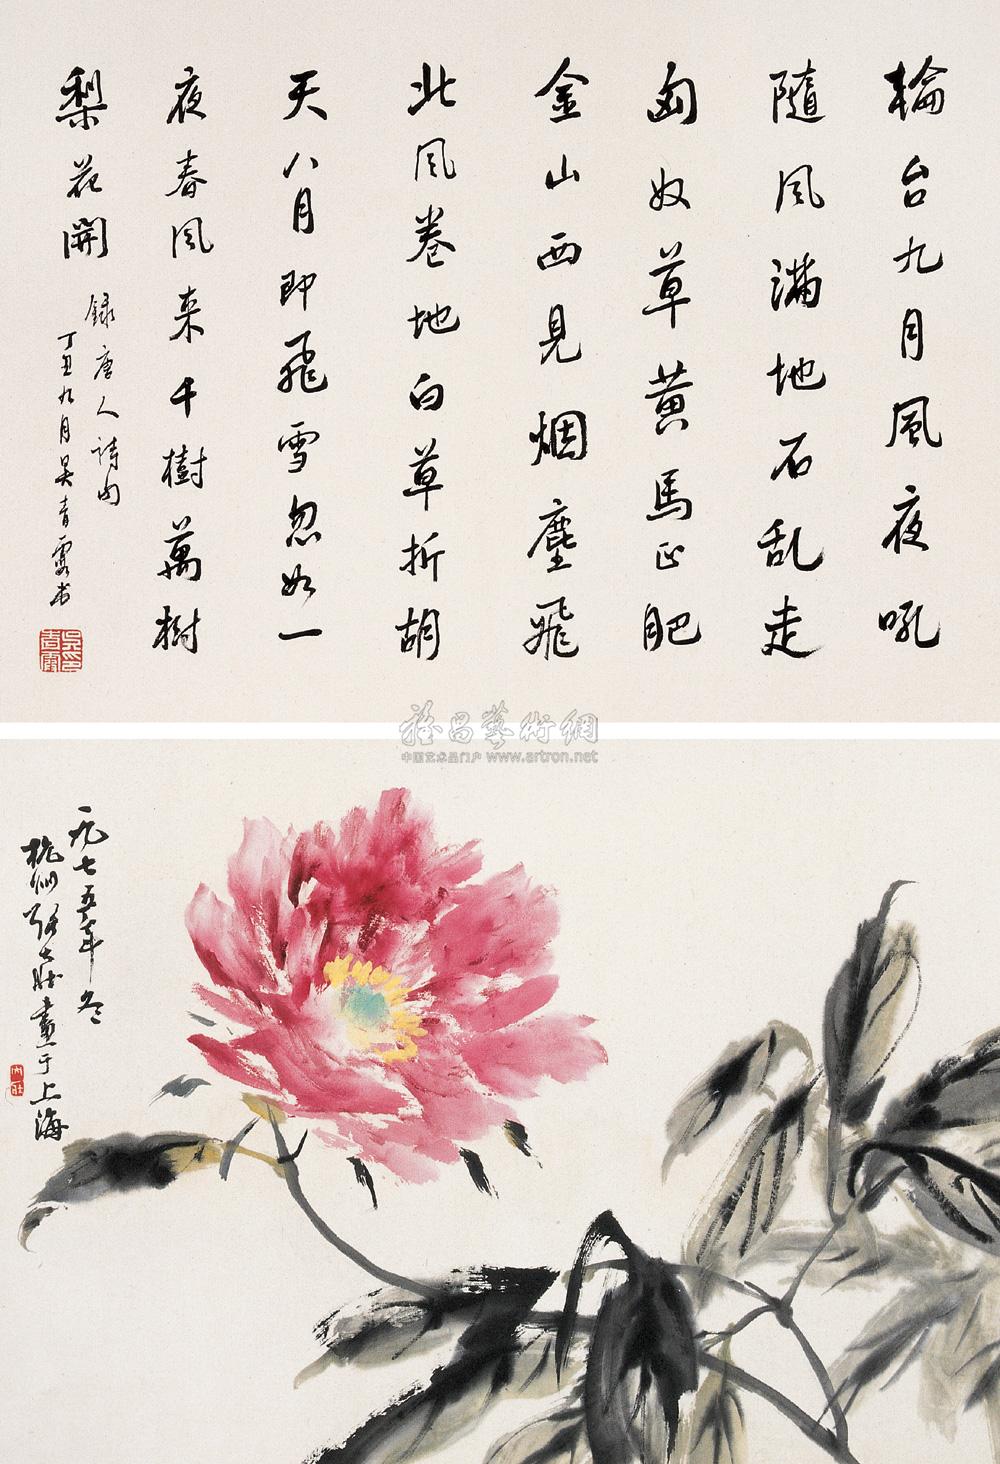 輪台九月風夜吼
隨風滿地石乱走
匈奴草黃馬正肥
金山西見烟塵飛
北風卷地白草折胡
天八月即飛雪忽如一
夜春風来千樹萬樹
梨花開
録唐人詩句
丁丑九月吴青霞书
吴青霞印
雅昌藝術網
中国艺术品门户 www.artron.net
一九七五年冬
杭州张大壮畫于上海
大壮